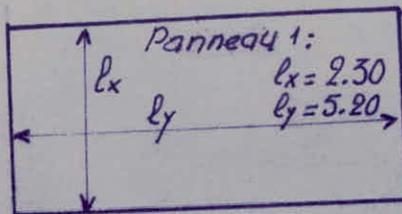 Panneau 1:
lx
lx = 2.30
ly
ly = 5.20